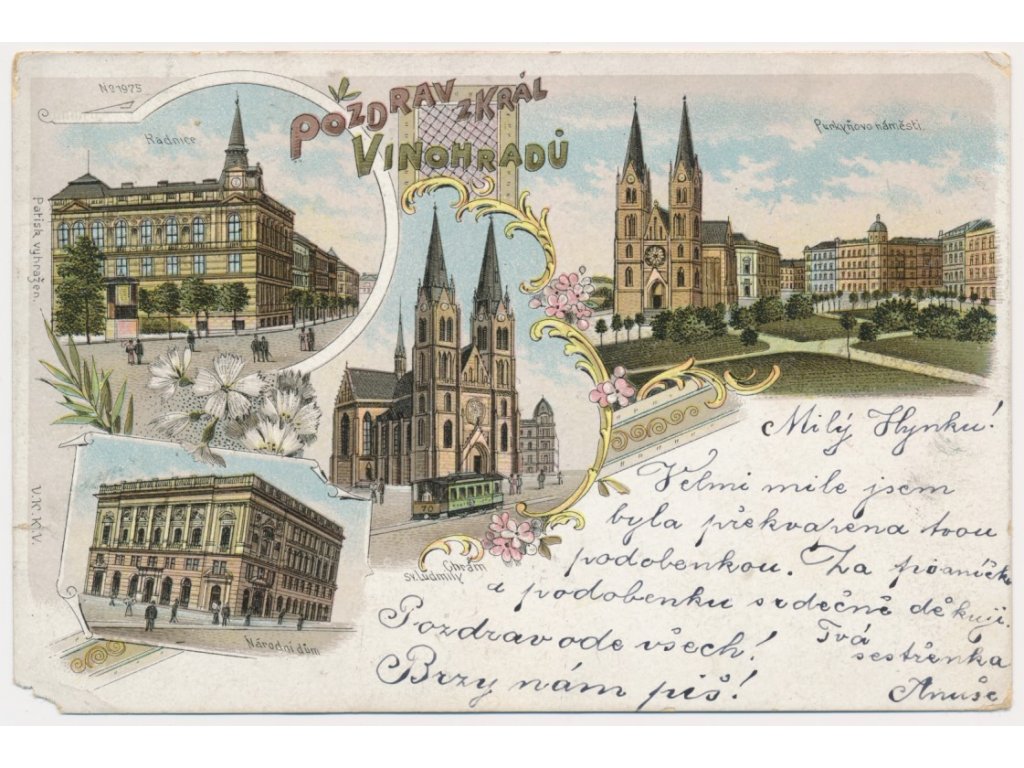 No 1975
Radnice
POZDRAV Z KRÁL
VINOHRADŮ
Purkyňovo náměstí.
Patisk vyhražen.
V. K. K. V.
70
Chrám
sv. Ludmily
Národní dům
Milý Hynku!
Velmi mile jsem
byla překvapena tvou
podobenkou. Za písničku
a podobenku srdečně děkuji.
Pozdrav ode všech!
Brzy nám piš!
Tvá
sestřenka
Anuše